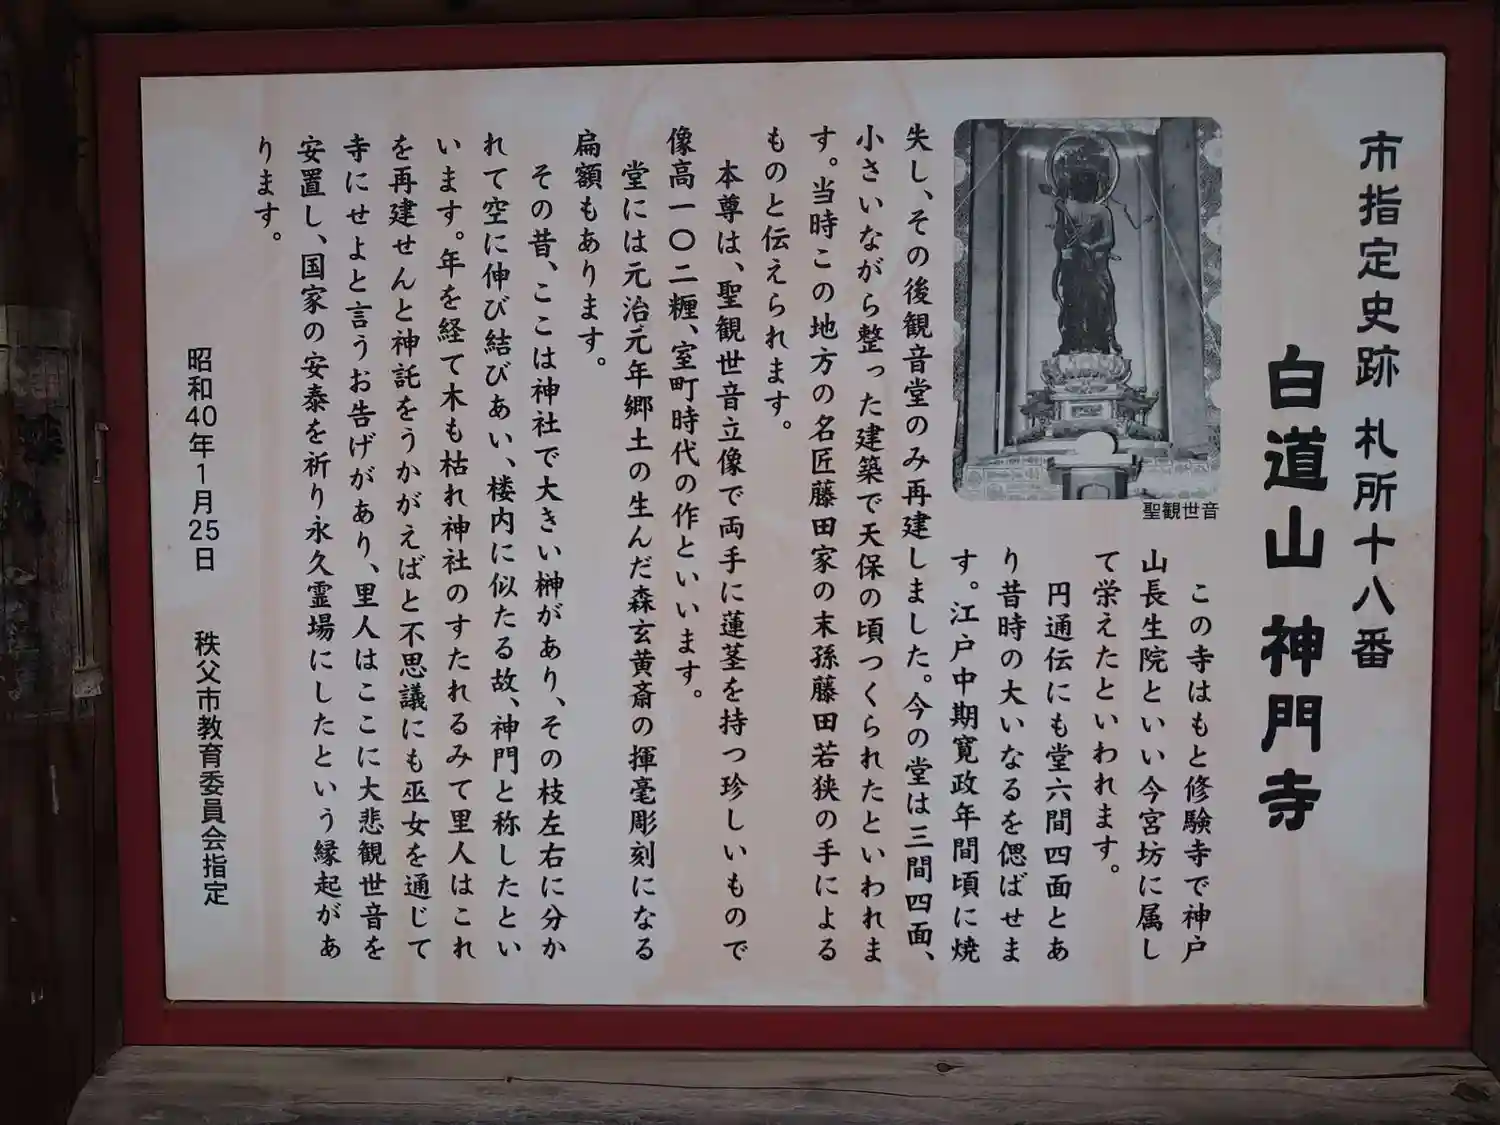 市指定史跡 札所十八番
白道山 神門寺
聖観世音
この寺はもと修験寺で神戸
山長生院といい今宮坊に属し
て栄えたといわれます。
円通伝にも堂六間四面とあ
り昔時の大いなるを偲ばせま
す。江戸中期寛政年間頃に焼
失し、その後観音堂のみ再建しました。今の堂は三間四面、
小さいながら整った建築で天保の頃つくられたといわれま
す。当時この地方の名匠藤田家の末孫藤田若狭の手による
ものと伝えられます。
本尊は、聖観世音立像で両手に蓮茎を持つ珍しいもので
像高一〇二糎、室町時代の作といいます。
堂には元治元年郷土の生んだ森玄黄斎の揮毫彫刻になる
扁額もあります。
その昔、ここは神社で大きい榊があり、その枝左右に分か
れて空に伸び結びあい、楼内に似たる故、神門と称したとい
います。年を経て木も枯れ神社のすたれるみて里人はこれ
を再建せんと神託をうかがえばと不思議にも巫女を通じて
寺にせよと言うお告げがあり、里人はここに大悲観世音を
安置し、国家の安泰を祈り永久霊場にしたという縁起があ
ります。
昭和40年1月25日 秩父市教育委員会指定